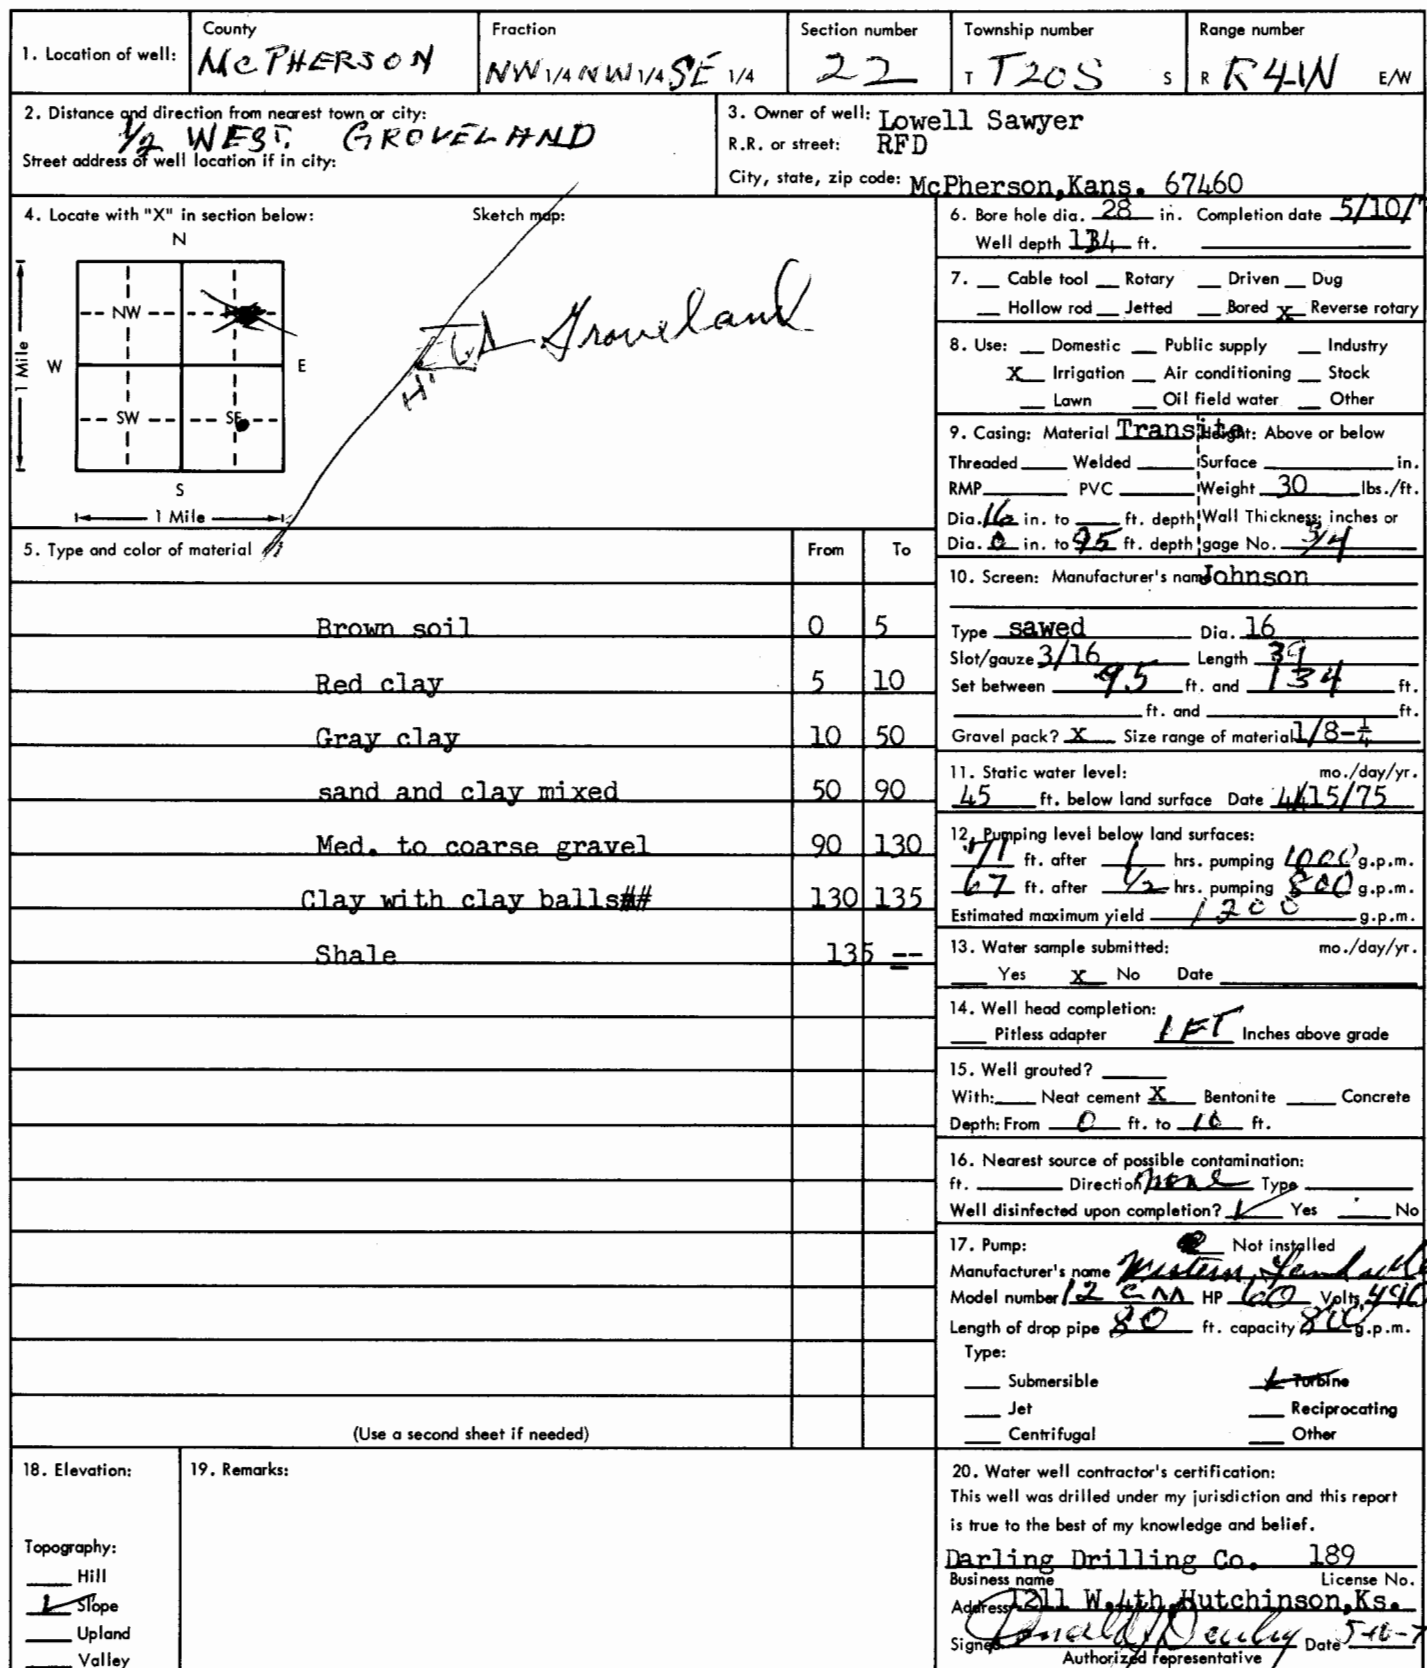 1. Location of well: County McPHERSON Fraction NW 1/4 NW 1/4 SE 1/4 Section number 22 Township number T T20S S Range number R R4W E/W
2. Distance and direction from nearest town or city:
1/2 WEST. GROVELAND
Street address of well location if in city:
3. Owner of well: Lowell Sawyer
R.R. or street: RFD
City, state, zip code: McPherson,Kans. 67460
4. Locate with "X" in section below: Sketch map:
N
NW
W E
SW SE
S
1 Mile
1 Mile
Groveland
5. Type and color of material From To
Brown soil 0 5
Red clay 5 10
Gray clay 10 50
sand and clay mixed 50 90
Med. to coarse gravel 90 130
Clay with clay balls## 130 135
Shale 135 --
(Use a second sheet if needed)
6. Bore hole dia. 28 in. Completion date 5/10/
Well depth 134 ft.
7. Cable tool Rotary Driven Dug
Hollow rod Jetted Bored X Reverse rotary
8. Use: Domestic Public supply Industry
X Irrigation Air conditioning Stock
Lawn Oil field water Other
9. Casing: Material Transite Height: Above or below
Threaded Welded Surface in.
RMP PVC Weight 30 lbs./ft.
Dia. 16 in. to ft. depth Wall Thickness: inches or
Dia. 0 in. to 95 ft. depth gage No. 3/4
10. Screen: Manufacturer's name Johnson
Type sawed Dia. 16
Slot/gauze 3/16 Length 39
Set between 95 ft. and 134 ft.
ft. and ft.
Gravel pack? X Size range of material 1/8-1/4
11. Static water level: mo./day/yr.
45 ft. below land surface Date 4/15/75
12. Pumping level below land surfaces:
71 ft. after 1 hrs. pumping 1000 g.p.m.
67 ft. after 1/2 hrs. pumping 800 g.p.m.
Estimated maximum yield 1200 g.p.m.
13. Water sample submitted: mo./day/yr.
Yes X No Date
14. Well head completion:
Pitless adapter 1 FT Inches above grade
15. Well grouted?
With: Neat cement X Bentonite Concrete
Depth: From 0 ft. to 10 ft.
16. Nearest source of possible contamination:
ft. Direction none Type
Well disinfected upon completion? Yes No
17. Pump: Not installed
Manufacturer's name Western
Model number 12 HP 60 Volts
Length of drop pipe 80 ft. capacity 800 g.p.m.
Type:
Submersible Turbine
Jet Reciprocating
Centrifugal Other
18. Elevation:
Topography:
Hill
Slope
Upland
Valley
19. Remarks:
20. Water well contractor's certification:
This well was drilled under my jurisdiction and this report
is true to the best of my knowledge and belief.
Darling Drilling Co. 189
Business name License No.
Address 1211 W.4th,Hutchinson,Ks.
Signed Date
Authorized representative